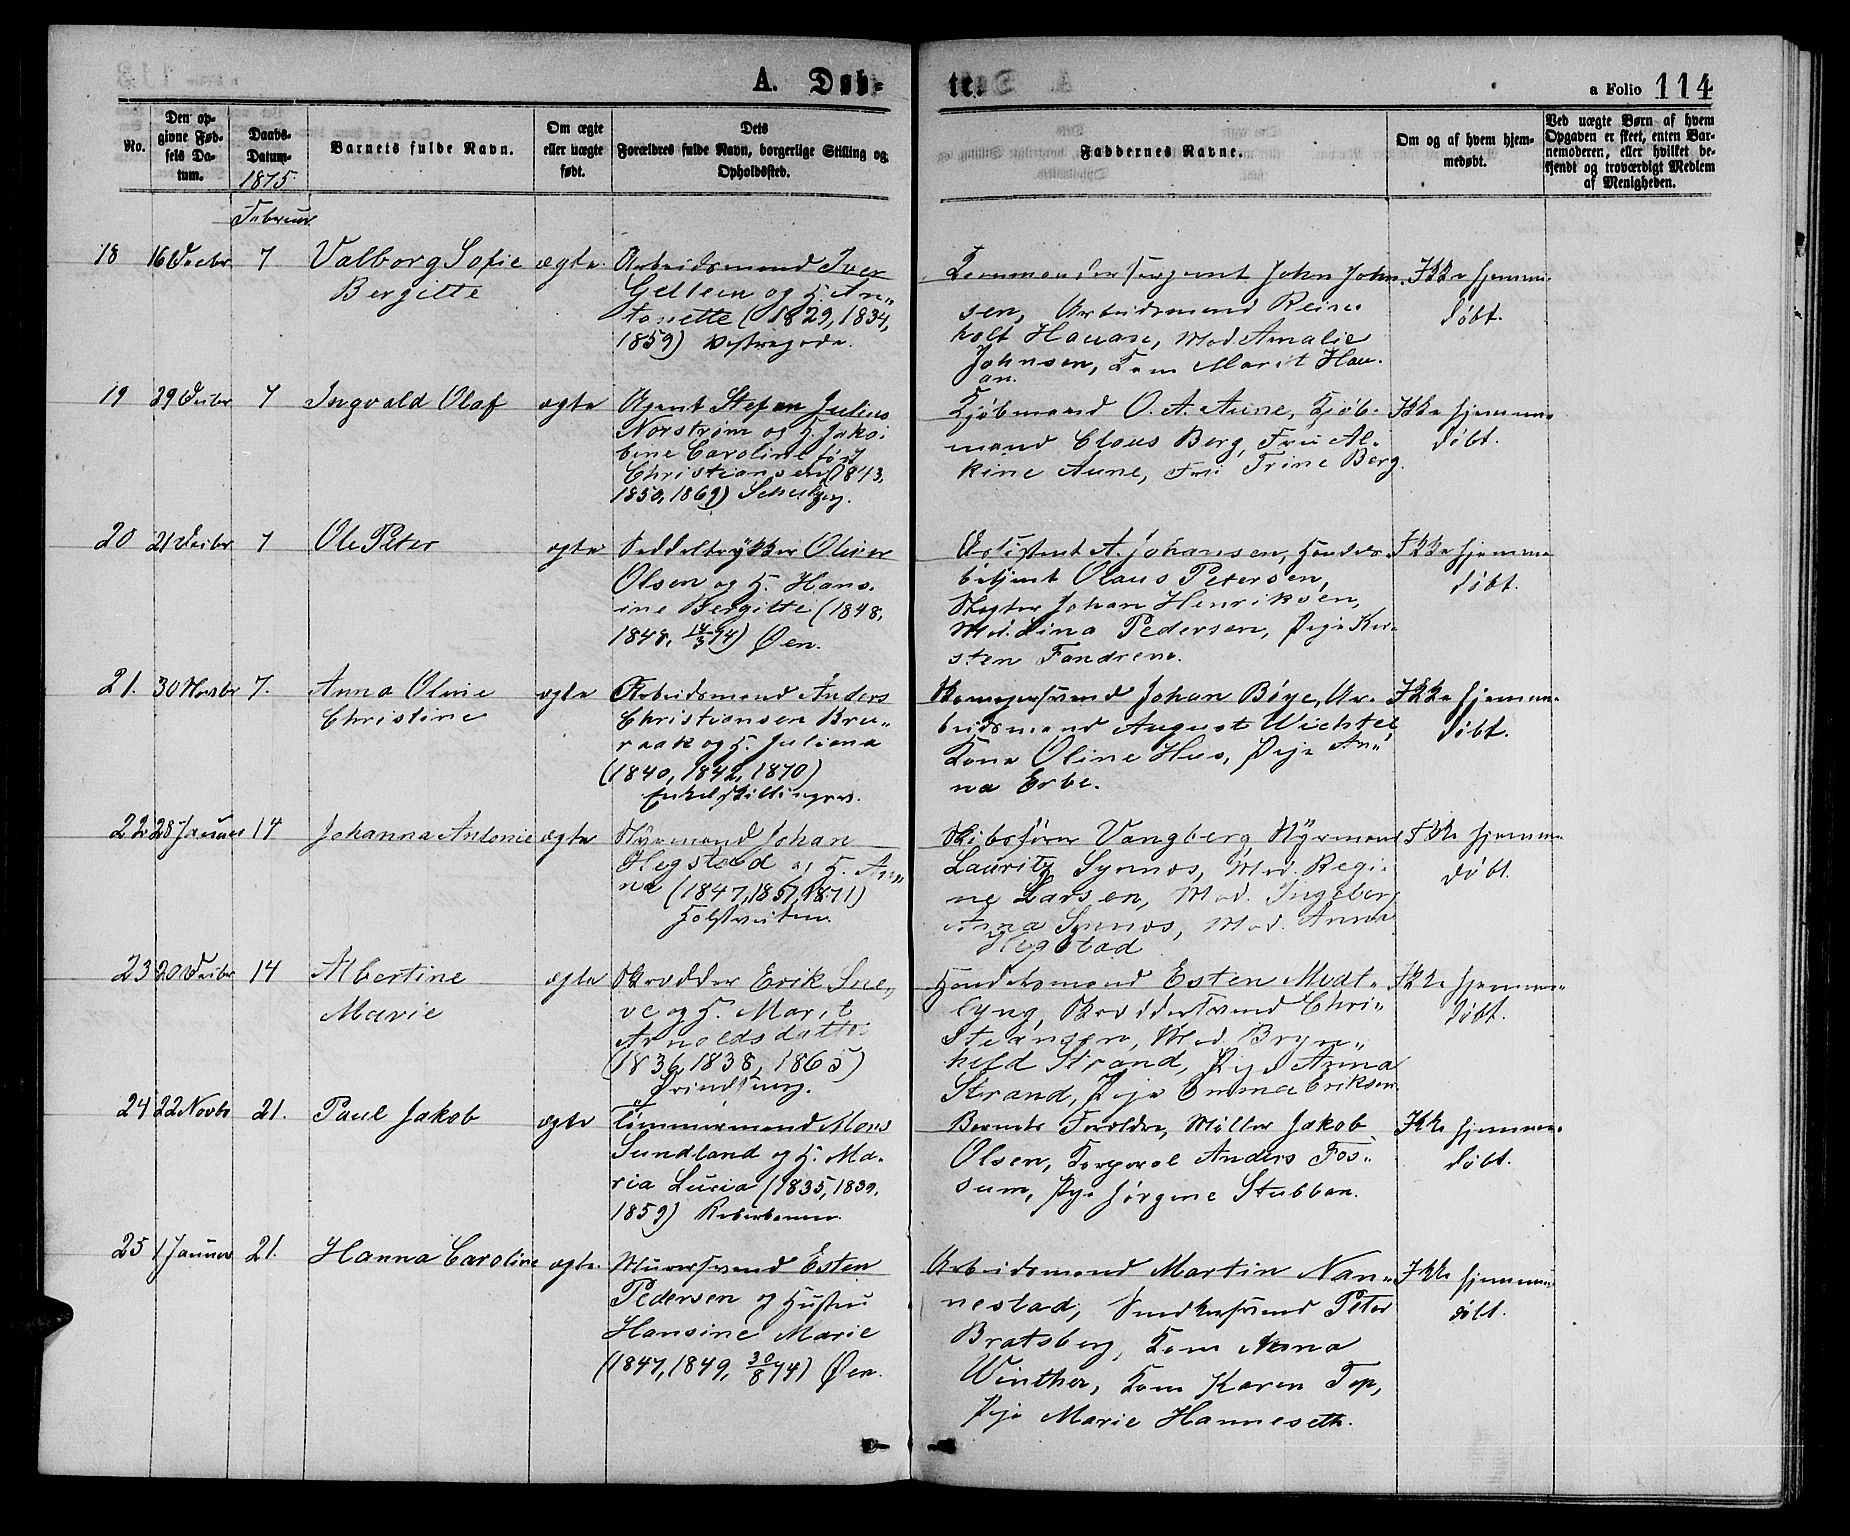 A. Døb-
te.
a Folio 114
No.
Den op-
givne Fød-
sels Da-
tum.
Daabs-
Datum-
1875
Barnets fulde Navn.
Om ægte
eller uægte
født.
Dets
Forældres fulde Navn, borgerlige Stilling og
Opholdssted.
Faddernes Navne.
Om og af hvem hjem-
medøbt.
Ved uægte Børn af hvem
Opgaven er skeet, enten Bar-
nemoderen, eller hvilket be-
kjendt og troværdigt Medlem
af Menigheden.
Februar
18 16 Decbr 7 Valborg Sofie
Bergitte
ægte
Arbeidsmand Iver
Gellein og H. An-
tonette (1829, 1834,
1859)
Kommandersergeant John John-
sen, Arbeidsmand Rein-
holt Hauan, Mad Amalie
Johnsen, Kone Marit Hau-
an.
Ikke hjemme-
døbt.
19 29 Decbr 7 Ingvald Olaf
ægte
Agent Stefan Julius
Norström og H. Jako-
bine Caroline født
Christiansen (1843,
1850, 1869)
Kjøbmand O. A. Aune, Kjøb-
mand Claus Berg, Fru Al-
kine Aune, Fru Trine Berg.
Ikke hjemme-
døbt.
20 21 Decbr 7 Ole Peter
ægte
Seddeltrykker Oliver
Olsen og H. Hans-
ine Bergitte (1848,
1848, 14/3 74) Øen.
Assistent A. Johansen, Handels-
betjent Olaus Petersen,
Slagter Johan Henriksen,
Mad. Lina Pedersen, Pige Kir-
sten Fandrem.
Ikke hjemme-
døbt.
21. 30 Novbr 7. Anna Oline
Christine
ægte
Arbeidsmand Anders
Christiansen Bru-
raak og H. Juliana
(1840, 1842, 1870)
Enkeltskillingsv.
Skomagersvend Johan Bøye, Ar-
beidsmand August Wichstel,
Kone Oline Hus, Pige An-
na Erbe.
Ikke hjemme-
døbt.
22. 28 Januar 14 Johanna Antonie
ægte
Styrmand Johan
Hegstad og H. An-
na (1847, 1851, 1871)
Holstveiten.
Skibsfører Vangberg, Styrmand
Lauritz Synnøs, Mad. Regi-
ne Larsen, Mad. Ingeborg
Anna Synnøs, Mad. Anna
Hegstad
Ikke hjemme-
døbt.
23 20 Decbr 14 Albertine
Marie
ægte
Skrædder Erik Sne-
ve og H. Marit
Arnoldsdatter
(1836, 1838, 1865)
Prindsensg.
Handelsmand Esten Midt-
lyng, Skræddersvend Chri-
stiansen, Mad. Bryn-
hild Strand, Pige Anna
Strand, Pige Emma Eriksen
Ikke hjemme-
døbt.
24 22 Novbr 21. Paul Jakob
ægte
Tømmermand Mons
Sundland og H. Ma-
ria Lucia (1835, 1839,
1859) Reberbanen.
Barnets Forældre, Møller Jakob
Olsen, Korporal Anders Fos-
sum, Pige Jørgine Stubban.
Ikke hjemme-
døbt.
25 1 Januar 21. Hanna Caroline
ægte.
Murersvend Esten
Pedersen og Hustru
Hansine Marie
(1847, 1849, 30/8 74) Øen.
Arbeidsmand Martin Nan-
nestad, Snedkersvend Peter
Bratsberg, Kone Anna
Winther, Kone Karen Top,
Pige Marie Hanneseth.
Ikke hjemme-
døbt.